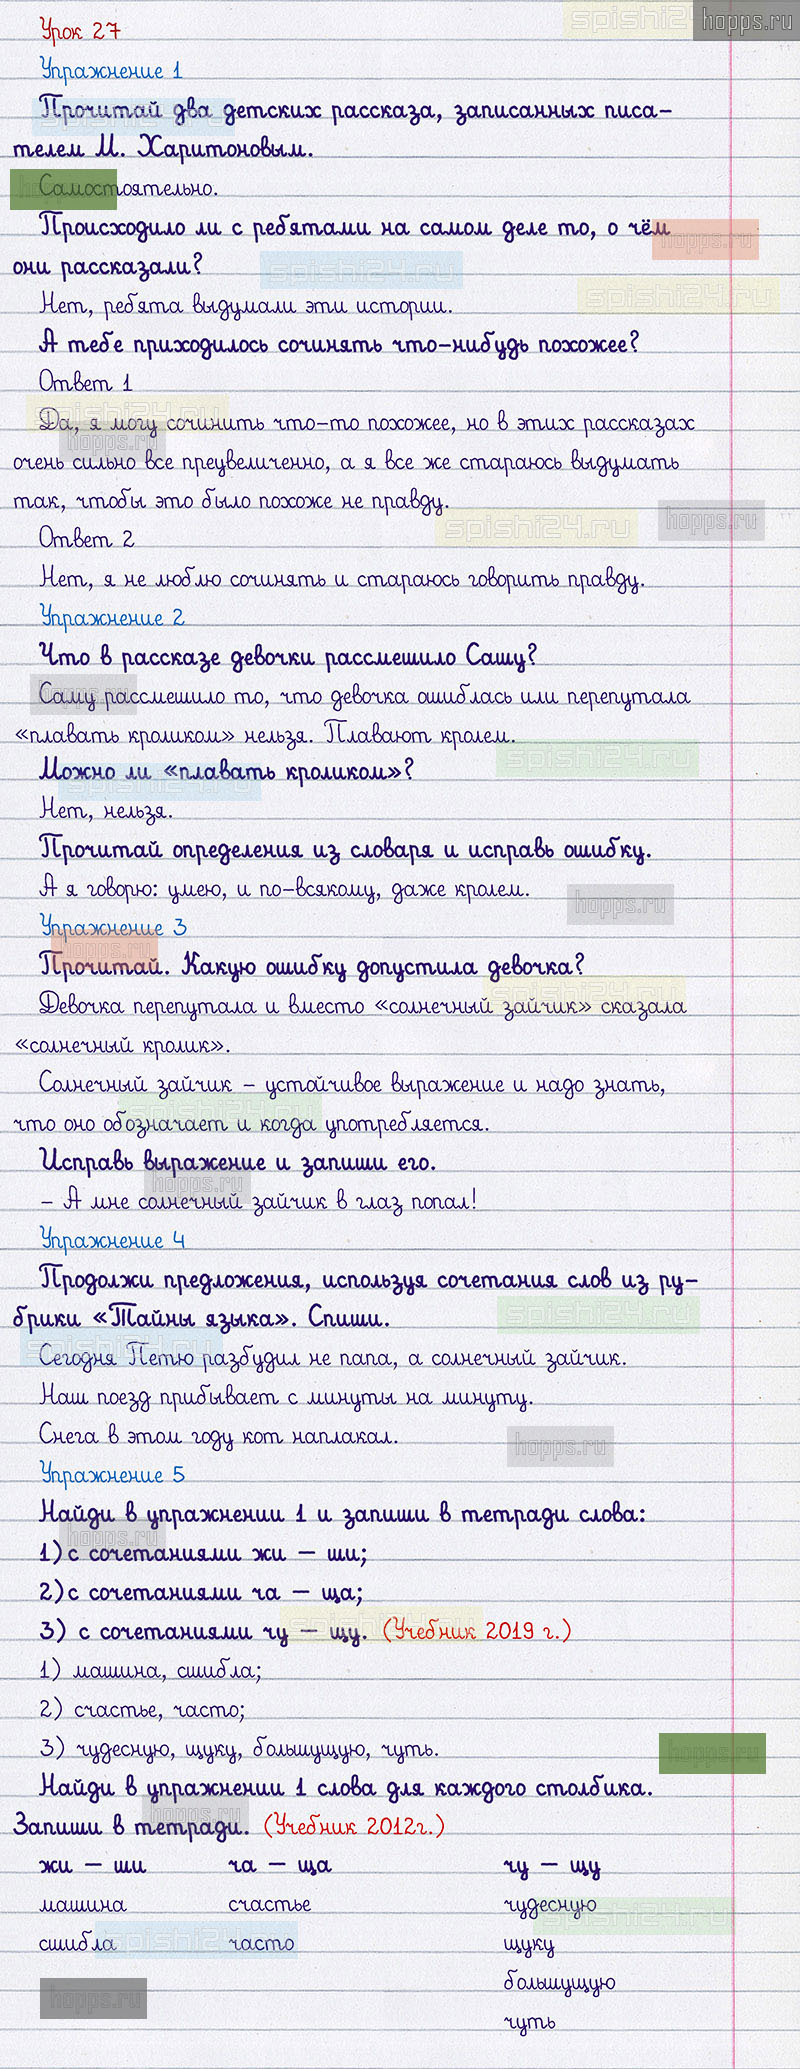 Урок 27
Упражнение 1
Прочитай два детских рассказа, записанных писа-
телем М. Харитоновым.
Самостоятельно.
Происходило ли с ребятами на самом деле то, о чём
они рассказали?
Нет, ребята выдумали эти истории.
А тебе приходилось сочинять что-нибудь похожее?
Ответ 1
Да, я могу сочинить что-то похожее, но в этих рассказах
очень сильно все преувеличенно, а я все же стараюсь выдумать
так, чтобы это было похоже не правду.
Ответ 2
Нет, я не люблю сочинять и стараюсь говорить правду.
Упражнение 2
Что в рассказе девочки рассмешило Сашу?
Сашу рассмешило то, что девочка ошиблась или перепутала
«плавать кроликом» нельзя. Плавают кролем.
Можно ли «плавать кроликом»?
Нет, нельзя.
Прочитай определения из словаря и исправь ошибку.
А я говорю: умею, и по-всякому, даже кролем.
Упражнение 3
Прочитай. Какую ошибку допустила девочка?
Девочка перепутала и вместо «солнечный зайчик» сказала
«солнечный кролик».
Солнечный зайчик – устойчивое выражение и надо знать,
что оно обозначает и когда употребляется.
Исправь выражение и запиши его.
– А мне солнечный зайчик в глаз попал!
Упражнение 4
Продолжи предложения, используя сочетания слов из ру-
брики «Тайны языка». Спиши.
Сегодня Петю разбудил не папа, а солнечный зайчик.
Наш поезд прибывает с минуты на минуту.
Снега в этом году кот наплакал.
Упражнение 5
Найди в упражнении 1 и запиши в тетради слова:
1) с сочетаниями жи – ши;
2) с сочетаниями ча – ща;
3) с сочетаниями чу – щу. (Учебник 2019 г.)
1) машина, сшибла;
2) счастье, часто;
3) чудесную, щуку, большущую, чуть.
Найди в упражнении 1 слова для каждого столбика.
Запиши в тетради. (Учебник 2012г.)
жи – ши ча – ща чу – щу
машина счастье чудесную
сшибла часто щуку
большущую
чуть